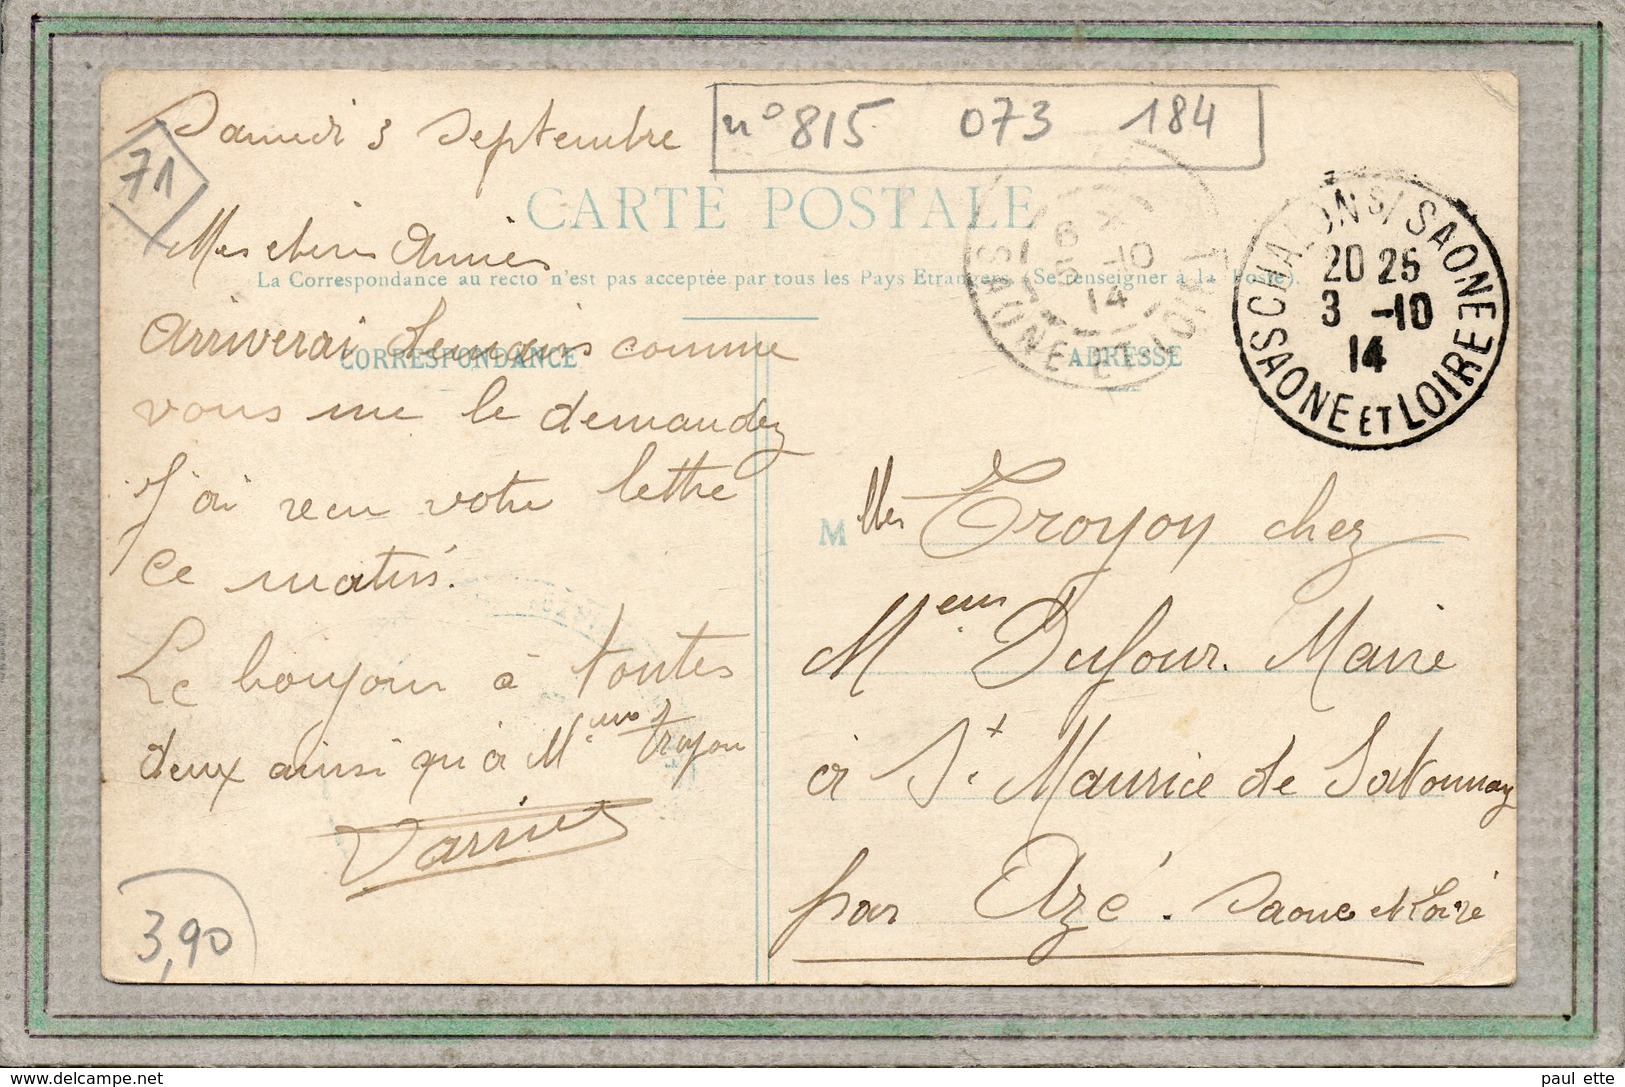 Samedi 3 Septembre
n° 815 073 184
71
CARTE POSTALE
Mes chères Amies
La Correspondance au recto n'est pas acceptée par tous les Pays Etrangers (Se renseigner à la Poste).
CHALON S/ SAONE
20 25
3 -10
14
SAONE ET LOIRE
6 -10
14
SAONE-ET-LOIRE
CORRESPONDANCE
ADRESSE
Arriverai comme
vous me le demandez
J'ai reçu votre lettre
ce matin.
Le bonjour à toutes
deux ainsi qu'à Troyon
M lles Troyon chez
Dufour. Maire
à St Maurice de Satonnay
par Azé. Saone et Loire
3,90
paul ette